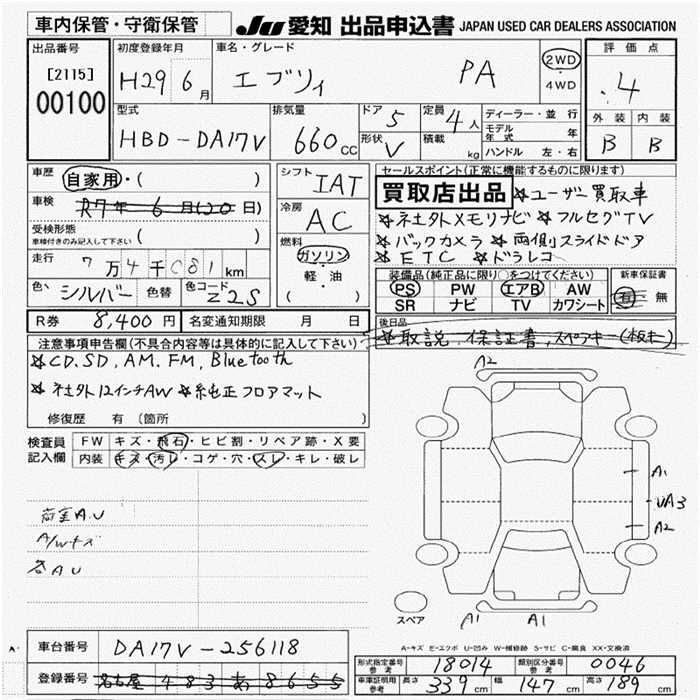 車内保管・守衛保管
JU 愛知 出品申込書 JAPAN USED CAR DEALERS ASSOCIATION
出品番号
[2115]
00100
初度登録年月
H29 6月
車名・グレード
エブリイ PA
2WD
・
4WD
評価点
4
外装 内装
B B
型式
HBD-DA17V
排気量
660 CC
ドア 5
形状 V
定員 4人
積載 kg
ディーラー・並行
モデル年式 年
ハンドル 左・右
車歴 自家用・( )
車検 R7年6月(20日)
受検形態
車検付きのみ記入して下さい ( )
走行 7万4千081km
色、シルバー 色替 色コード Z2S
シフト IAT
冷房 AC
燃料
ガソリン
軽・油
( )
セールスポイント(正常に機能するものに限ります)
買取店出品 ☆ユーザー買取車
☆社外メモリナビ ☆フルセグTV
☆バックカメラ ☆両側スライドドア
☆ETC ☆ドラレコ
装備品(純正品に限り○をつけてください)
PS PW エアB AW
SR ナビ TV カワシート
新車保証書
有・無
R券 8,400円 名変通知期限 月 日
後日品
☆取説、保証書、スペアキー(板キー)
注意事項申告欄(不具合内容等は具体的に記入して下さい)
☆CD.SD,AM.FM,Bluetooth
☆社外12インチAW ☆純正フロアマット
修復歴 有 (箇所 )
検査員記入欄
FW キズ・飛石・ヒビ割・リペア跡・X要
内装 キズ・汚レ・コゲ・穴・スレ・キレ・破レ
荷室A.U
A/Wキズ
各AU
A2
A1
UA3
A2
スペア
A1 A1
A-キズ E-エクボ U-凹み W-補修跡 S-サビ C-腐食 XX-交換済
A・
車台番号 DA17V-256118
登録番号 名古屋 483 あ 8655
形式指定番号参考 18014 類別区分番号参考 0046
車庫証明用参考 長さ 339cm 幅 147cm 高さ 189cm